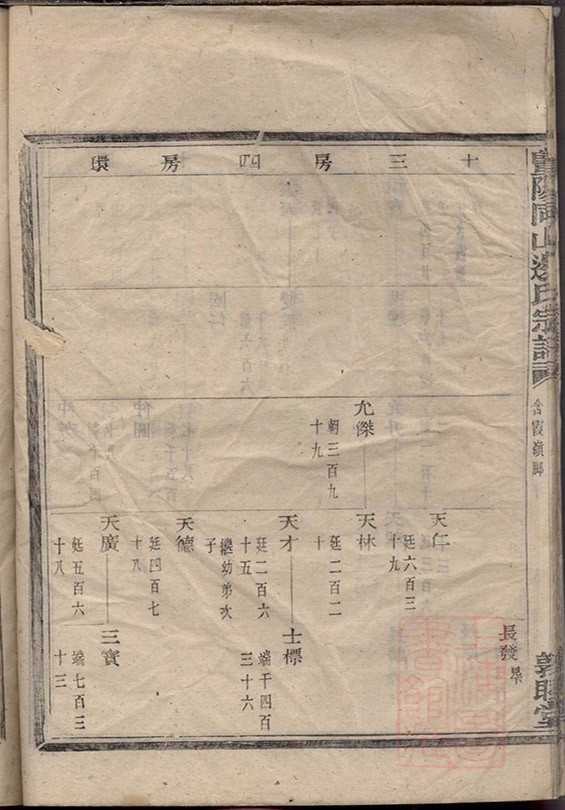 暨陽同山邊氏宗譜
含霞嶺腳
敦睦堂
十三房四房環
長發
天仁
廷六百三
十九
允傑
朝三百九
十九
天林
廷二百二
十
天才
廷二百六
十五
繼幼弟次
子
士標
端千四百
三十六
天德
廷四百七
十八
天廣
廷五百六
十八
三寶
端七百三
十三